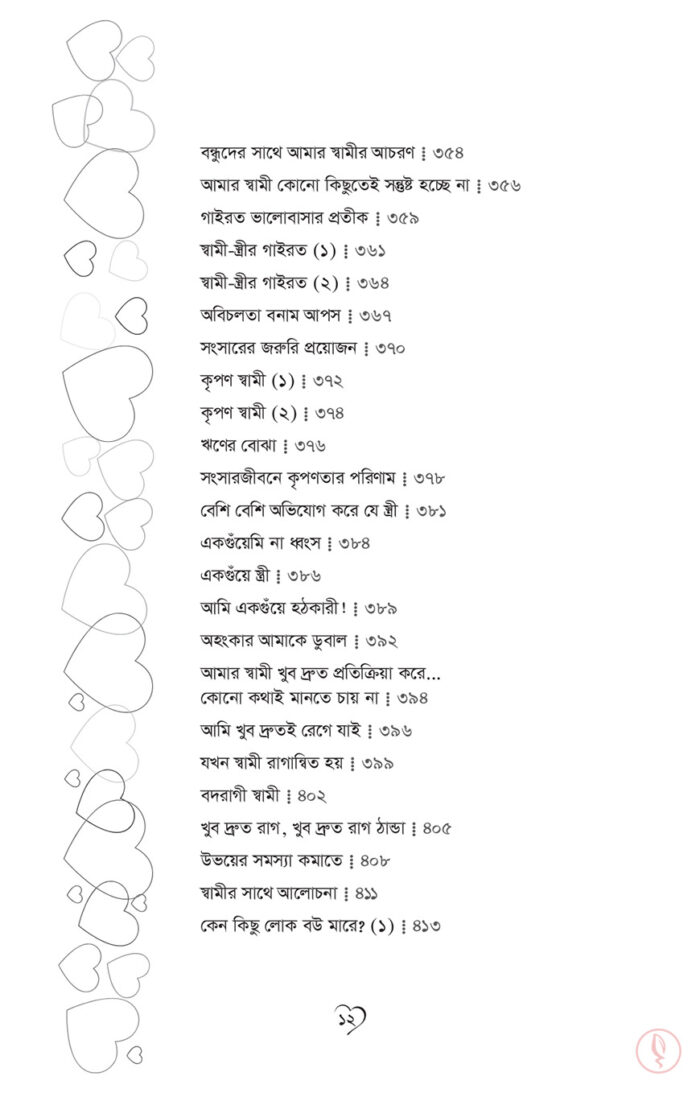 বন্ধুদের সাথে আমার স্বামীর আচরণ ⁞ ৩৫৪
আমার স্বামী কোনো কিছুতেই সন্তুষ্ট হচ্ছে না ⁞ ৩৫৬
গাইরত ভালোবাসার প্রতীক ⁞ ৩৫৯
স্বামী-স্ত্রীর গাইরত (১) ⁞ ৩৬১
স্বামী-স্ত্রীর গাইরত (২) ⁞ ৩৬৪
অবিচলতা বনাম আপস ⁞ ৩৬৭
সংসারের জরুরি প্রয়োজন ⁞ ৩৭০
কৃপণ স্বামী (১) ⁞ ৩৭২
কৃপণ স্বামী (২) ⁞ ৩৭৪
ঋণের বোঝা ⁞ ৩৭৬
সংসারজীবনে কৃপণতার পরিণাম ⁞ ৩৭৮
বেশি বেশি অভিযোগ করে যে স্ত্রী ⁞ ৩৮১
একগুঁয়েমি না ধ্বংস ⁞ ৩৮৪
একগুঁয়ে স্ত্রী ⁞ ৩৮৬
আমি একগুঁয়ে হঠকারী! ⁞ ৩৮৯
অহংকার আমাকে ডুবাল ⁞ ৩৯২
আমার স্বামী খুব দ্রুত প্রতিক্রিয়া করে...
কোনো কথাই মানতে চায় না ⁞ ৩৯৪
আমি খুব দ্রুতই রেগে যাই ⁞ ৩৯৬
যখন স্বামী রাগান্বিত হয় ⁞ ৩৯৯
বদরাগী স্বামী ⁞ ৪০২
খুব দ্রুত রাগ, খুব দ্রুত রাগ ঠান্ডা ⁞ ৪০৫
উভয়ের সমস্যা কমাতে ⁞ ৪০৮
স্বামীর সাথে আলোচনা ⁞ ৪১১
কেন কিছু লোক বউ মারে? (১) ⁞ ৪১৩
১২